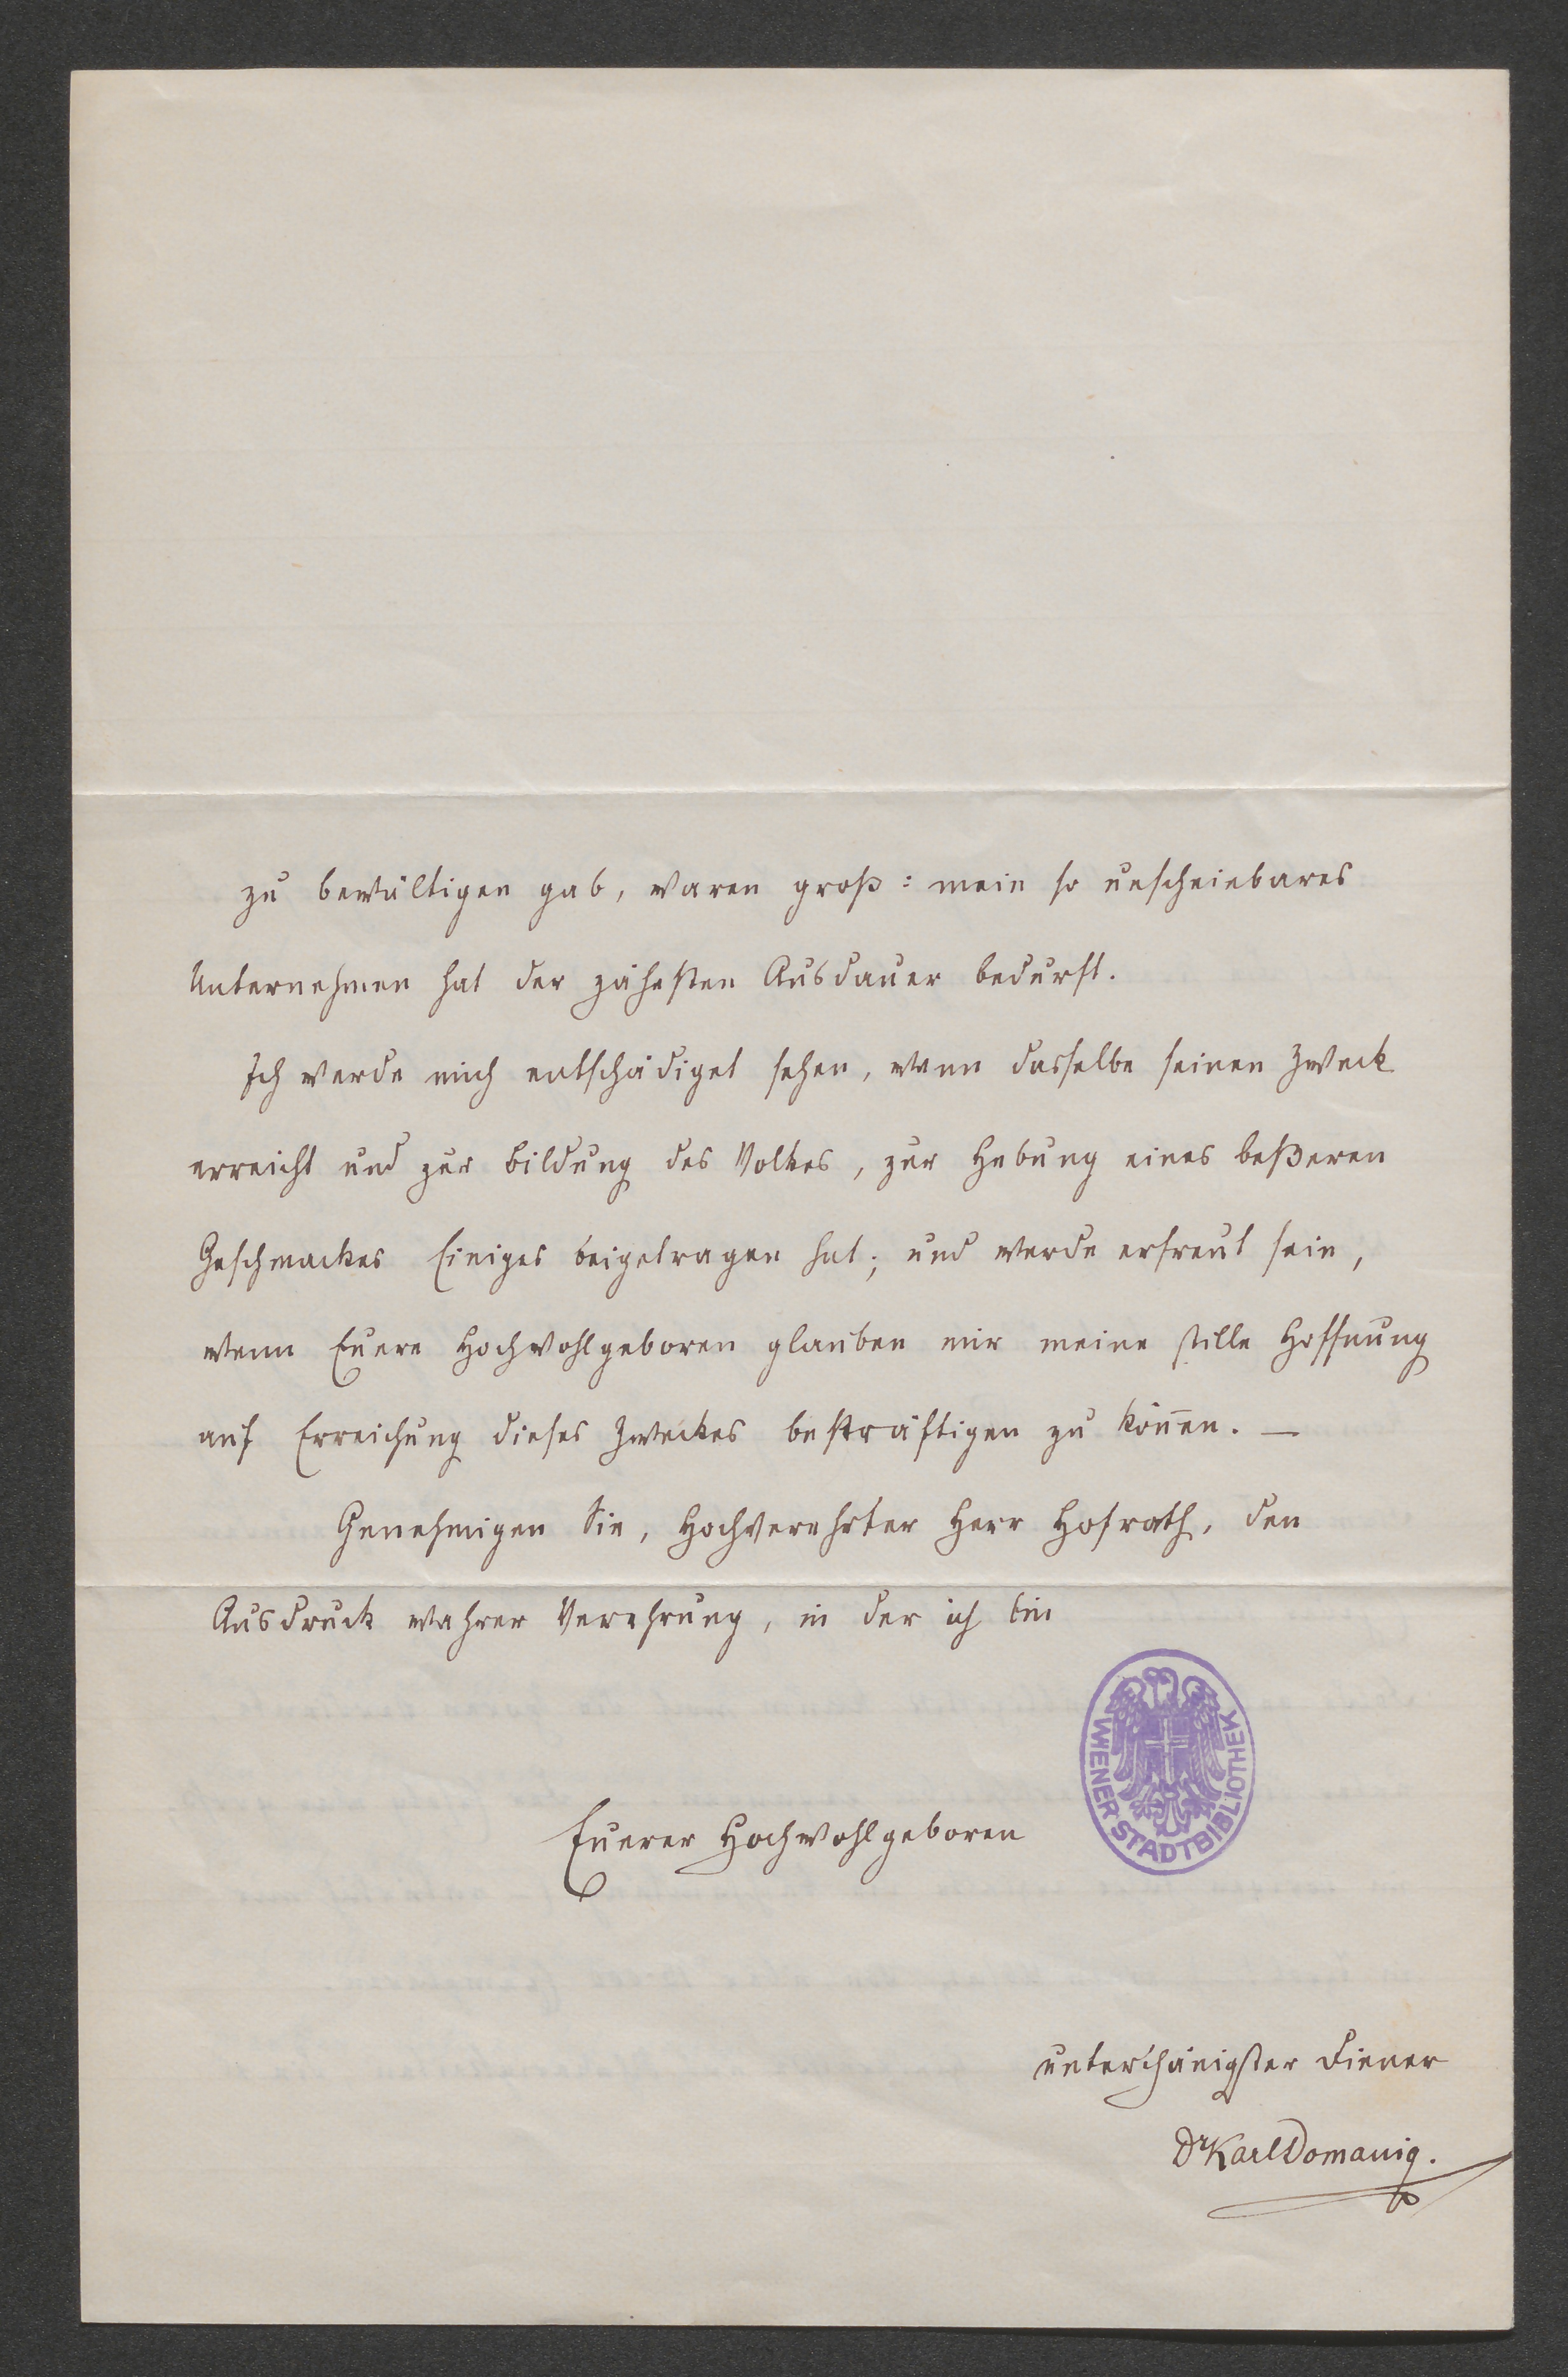 zu bewältigen gab, waren groß: mein so unscheinbares
Unternehmen hat der zähesten Ausdauer bedurft.
Ich werde mich entschädiget sehen, wenn dasselbe seinen Zweck
erreicht und zur Bildung des Volkes, zur Hebung eines beßeren
Geschmackes Einiges beigetragen hat; und werde erfreut sein,
wenn Euere Hochwohlgeboren glauben mir meine stille Hoffnung
auf Erreichung dieses Zweckes bekräftigen zu kön̄en. —
Genehmigen Sie, Hochverehrter Herr Hofrath, den
Ausdruck wahrer Verehrung, in der ich bin
WIENER STADTBIBLIOTHEK
Euerer Hochwohlgeboren
unterthänigster Diener
Dr Karl Domanig.